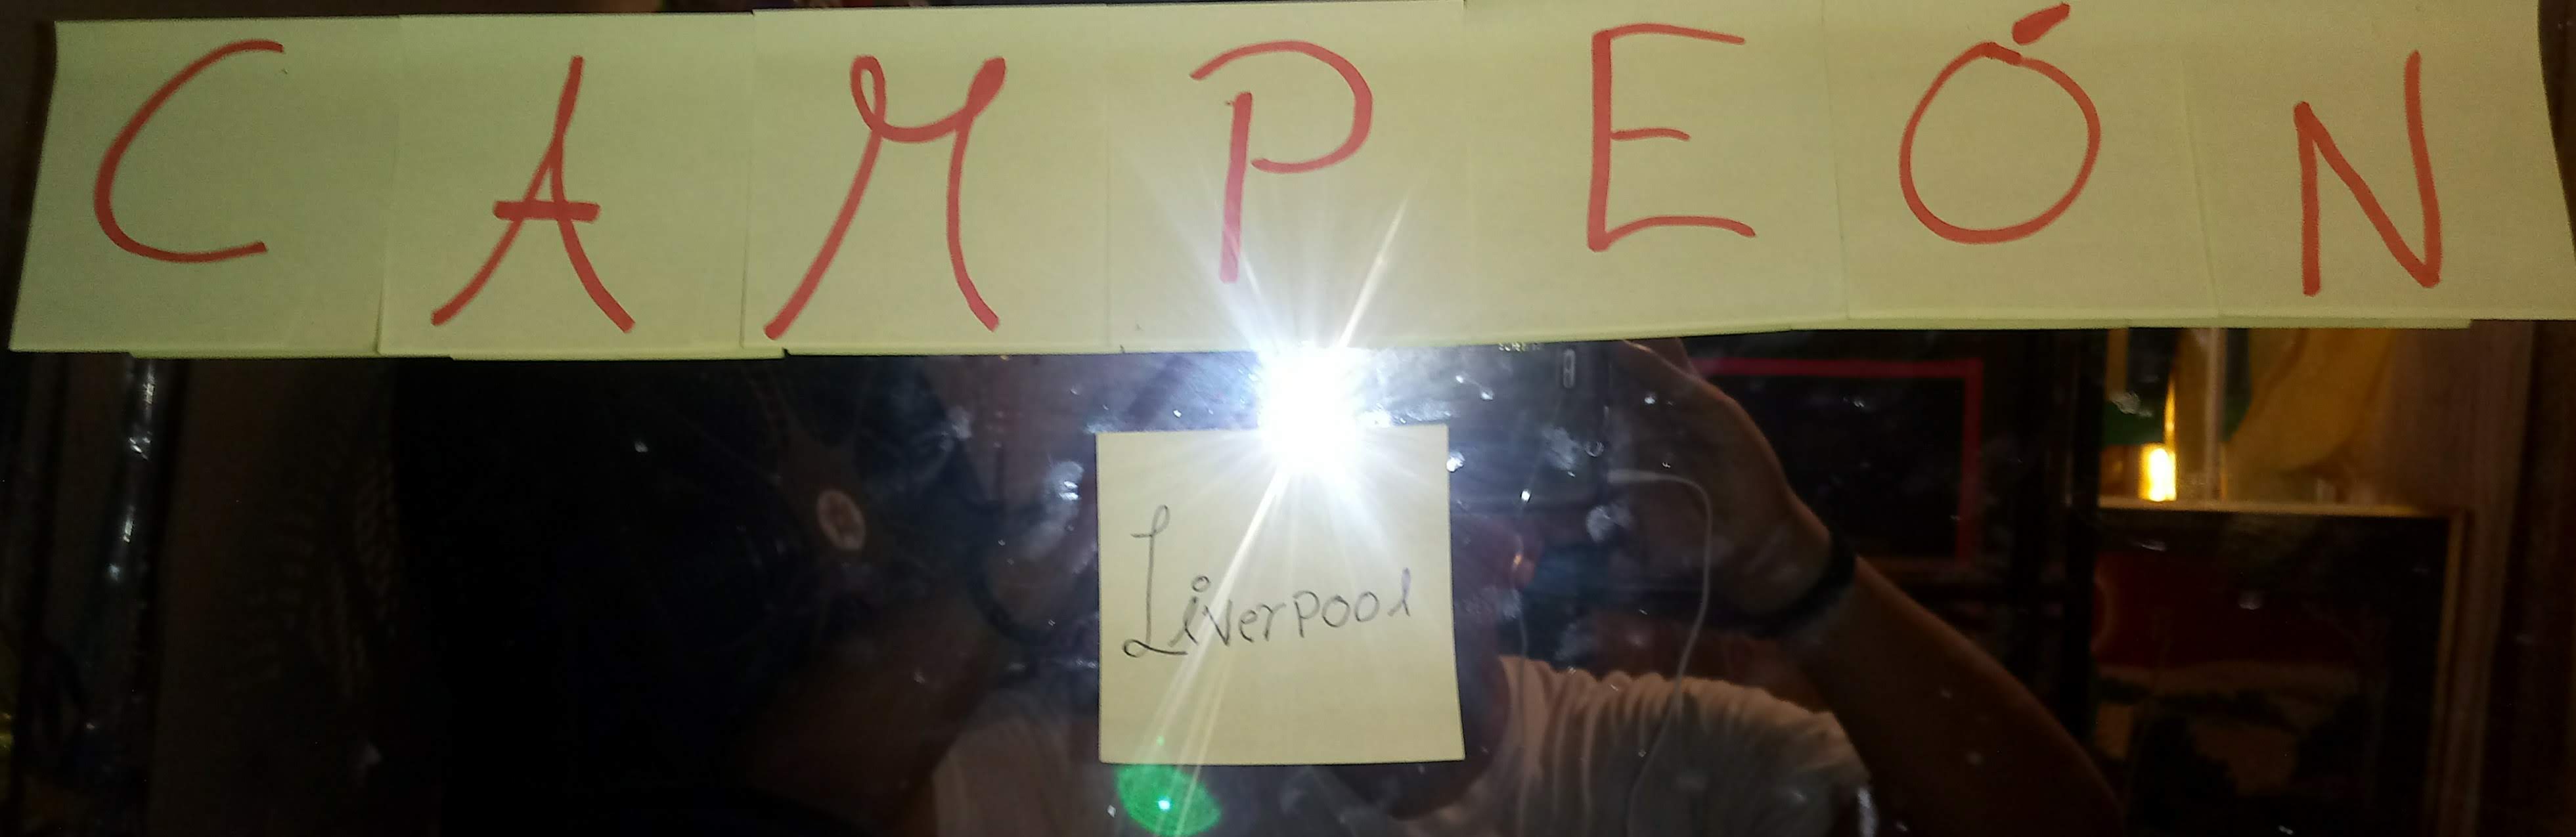 CAMPEÓN
Liverpool